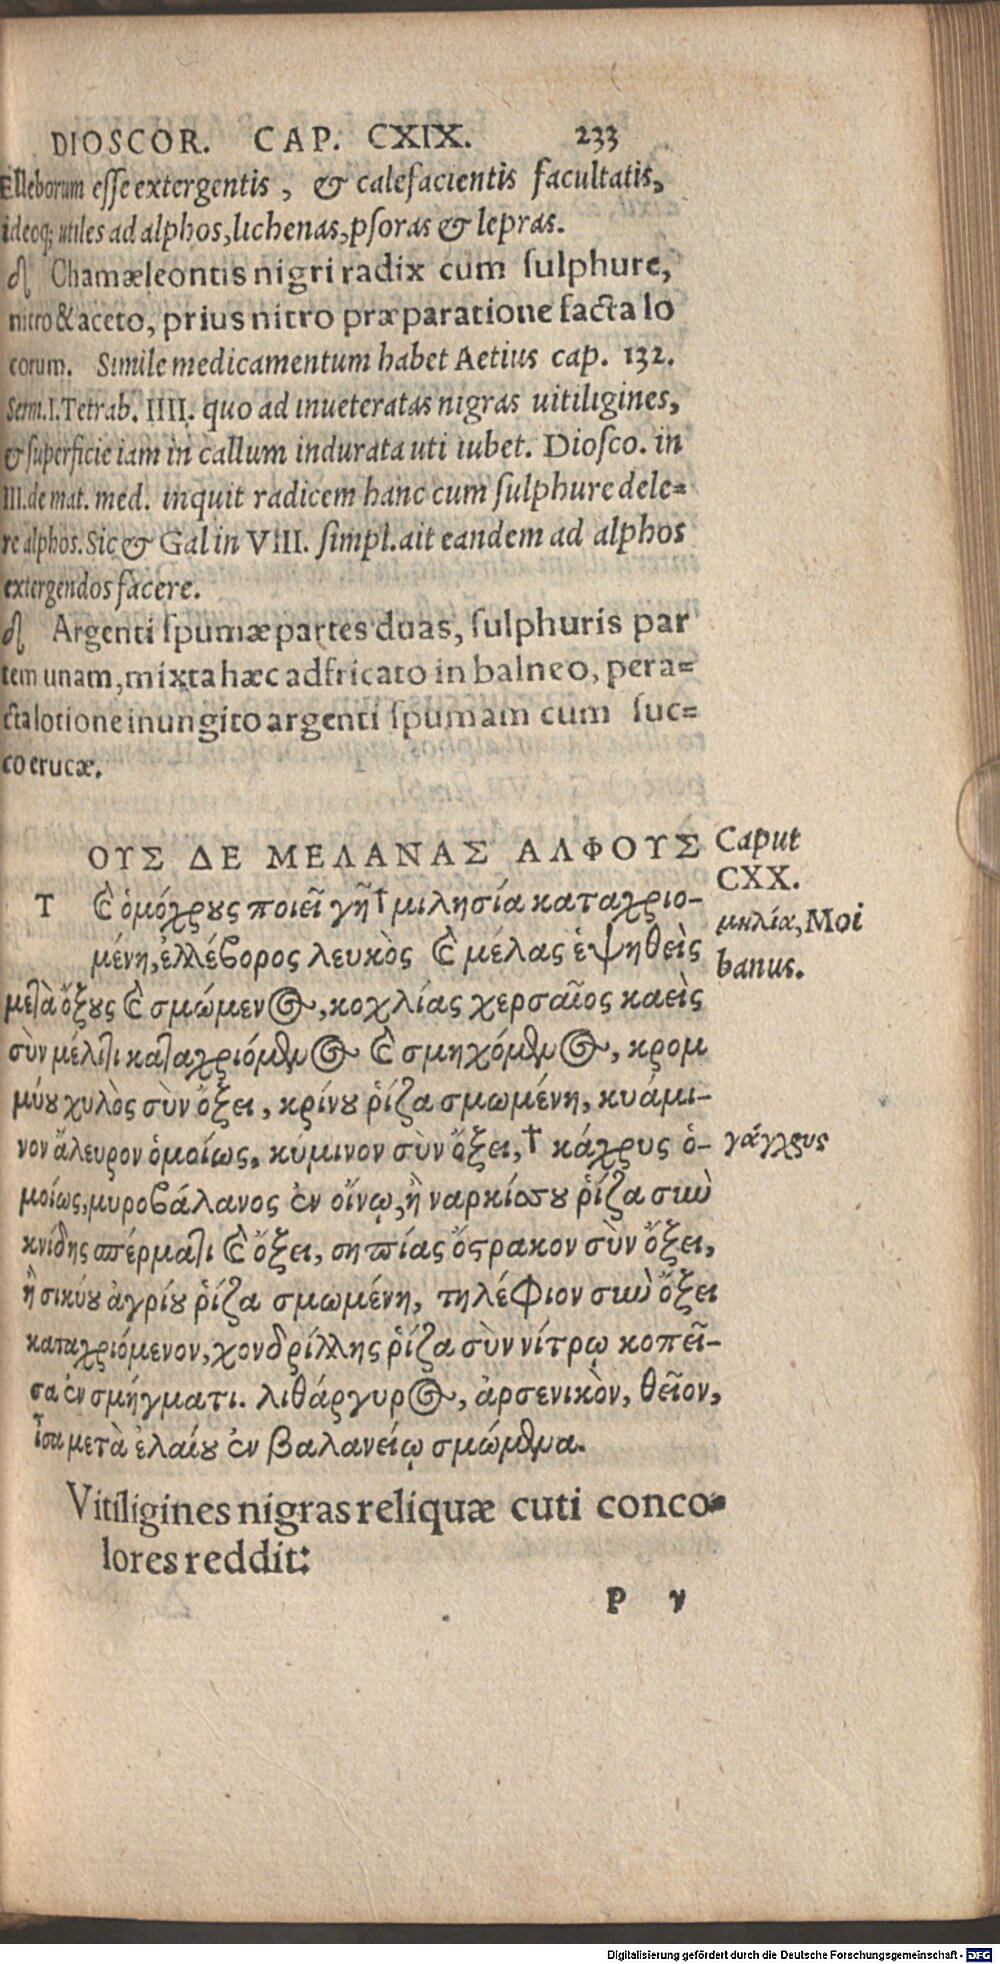 DIOSCOR. CAP. CXIX. 233
Elleborum esse extergentis, & calefacientis facultatis,
ideoq; utiles ad alphos, lichenas, psoras & lepras.
Chamæleontis nigri radix cum sulphure,
nitro & aceto, prius nitro præparatione facta lo
corum. Simile medicamentum habet Aetius cap. 132.
Serm. I. Tetrab. IIII. quo ad inueteratas nigras uitiligines,
& superficie iam in callum indurata uti iubet. Diosco. in
III. de mat. med. inquit radicem hanc cum sulphure dele=
re alphos. Sic & Gal in VIII. simpl. ait eandem ad alphos
extergendos facere.
Argenti spumæ partes duas, sulphuris par
tem unam, mixta hæc adfricato in balneo, pera=
cta lotione inungito argenti spumam cum suc=
co erucæ.
ΟΥΣ ΔΕ ΜΕΛΑΝΑΣ ΑΛΦΟΥΣ
Caput
CXX.
Τ
ϗ ὁμόχρους ποιεῖ γῆ † μιλησία καταχριο-
μηλία, Moi
banus.
μένη, ἐλλέβορος λευκὸς ϗ μέλας ἑψηθεὶς
μετὰ ὄξους ϗ σμώμενος, κοχλίας χερσαῖος καεὶς
σὺν μέλιτι καταχριόμενος ϗ σμηχόμενος, κρομ
μύου χυλὸς σὺν ὄξει, κρίνου ῥίζα σμωμένη, κυάμι-
νον ἄλευρον ὁμοίως, κύμινον σὺν ὄξει, † κάχρυς ὁ-
γάγχρυς
μοίως, μυροβάλανος ἐν οἴνῳ, ἢ ναρκίσσου ῥίζα σὺν
κνίδης σπέρματι ϗ ὄξει, σηπίας ὄστρακον σὺν ὄξει,
ἢ σικύου ἀγρίου ῥίζα σμωμένη, τηλέφιον σὺν ὄξει
καταχριόμενον, χονδρίλλης ῥίζα σὺν νίτρῳ κοπεῖ-
σα ἐν σμήγματι. λιθάργυρος, ἀρσενικὸν, θεῖον,
ἶσα μετὰ ἐλαίου ἐν βαλανείῳ σμώμενα.
Vitiligines nigras reliquæ cuti conco=
lores reddit:
P v
Digitalisierung gefördert durch die Deutsche Forschungsgemeinschaft - DFG